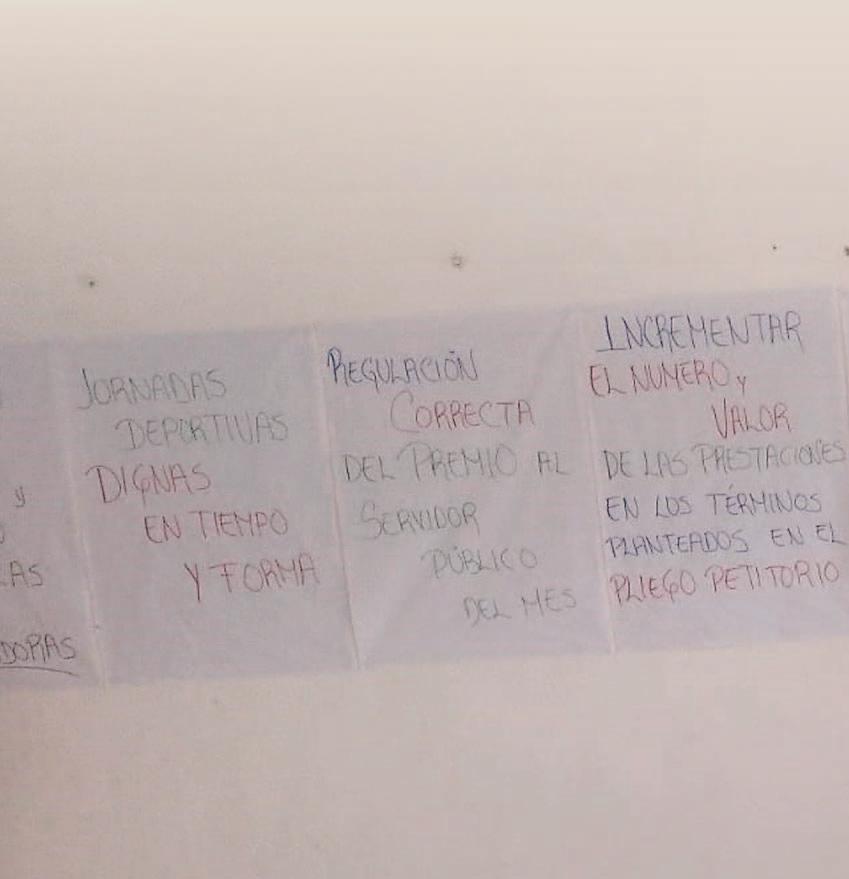 y
LAS
DORAS
JORNADAS
DEPORTIVAS
DIGNAS
EN TIEMPO
Y FORMA
REGULACIÓN
CORRECTA
DEL PREMIO AL
SERVIDOR
PÚBLICO
DEL MES
INCREMENTAR
EL NUMERO y
VALOR
DE LAS PRESTACIONES
EN LOS TÉRMINOS
PLANTEADOS EN EL
PLIEGO PETITORIO